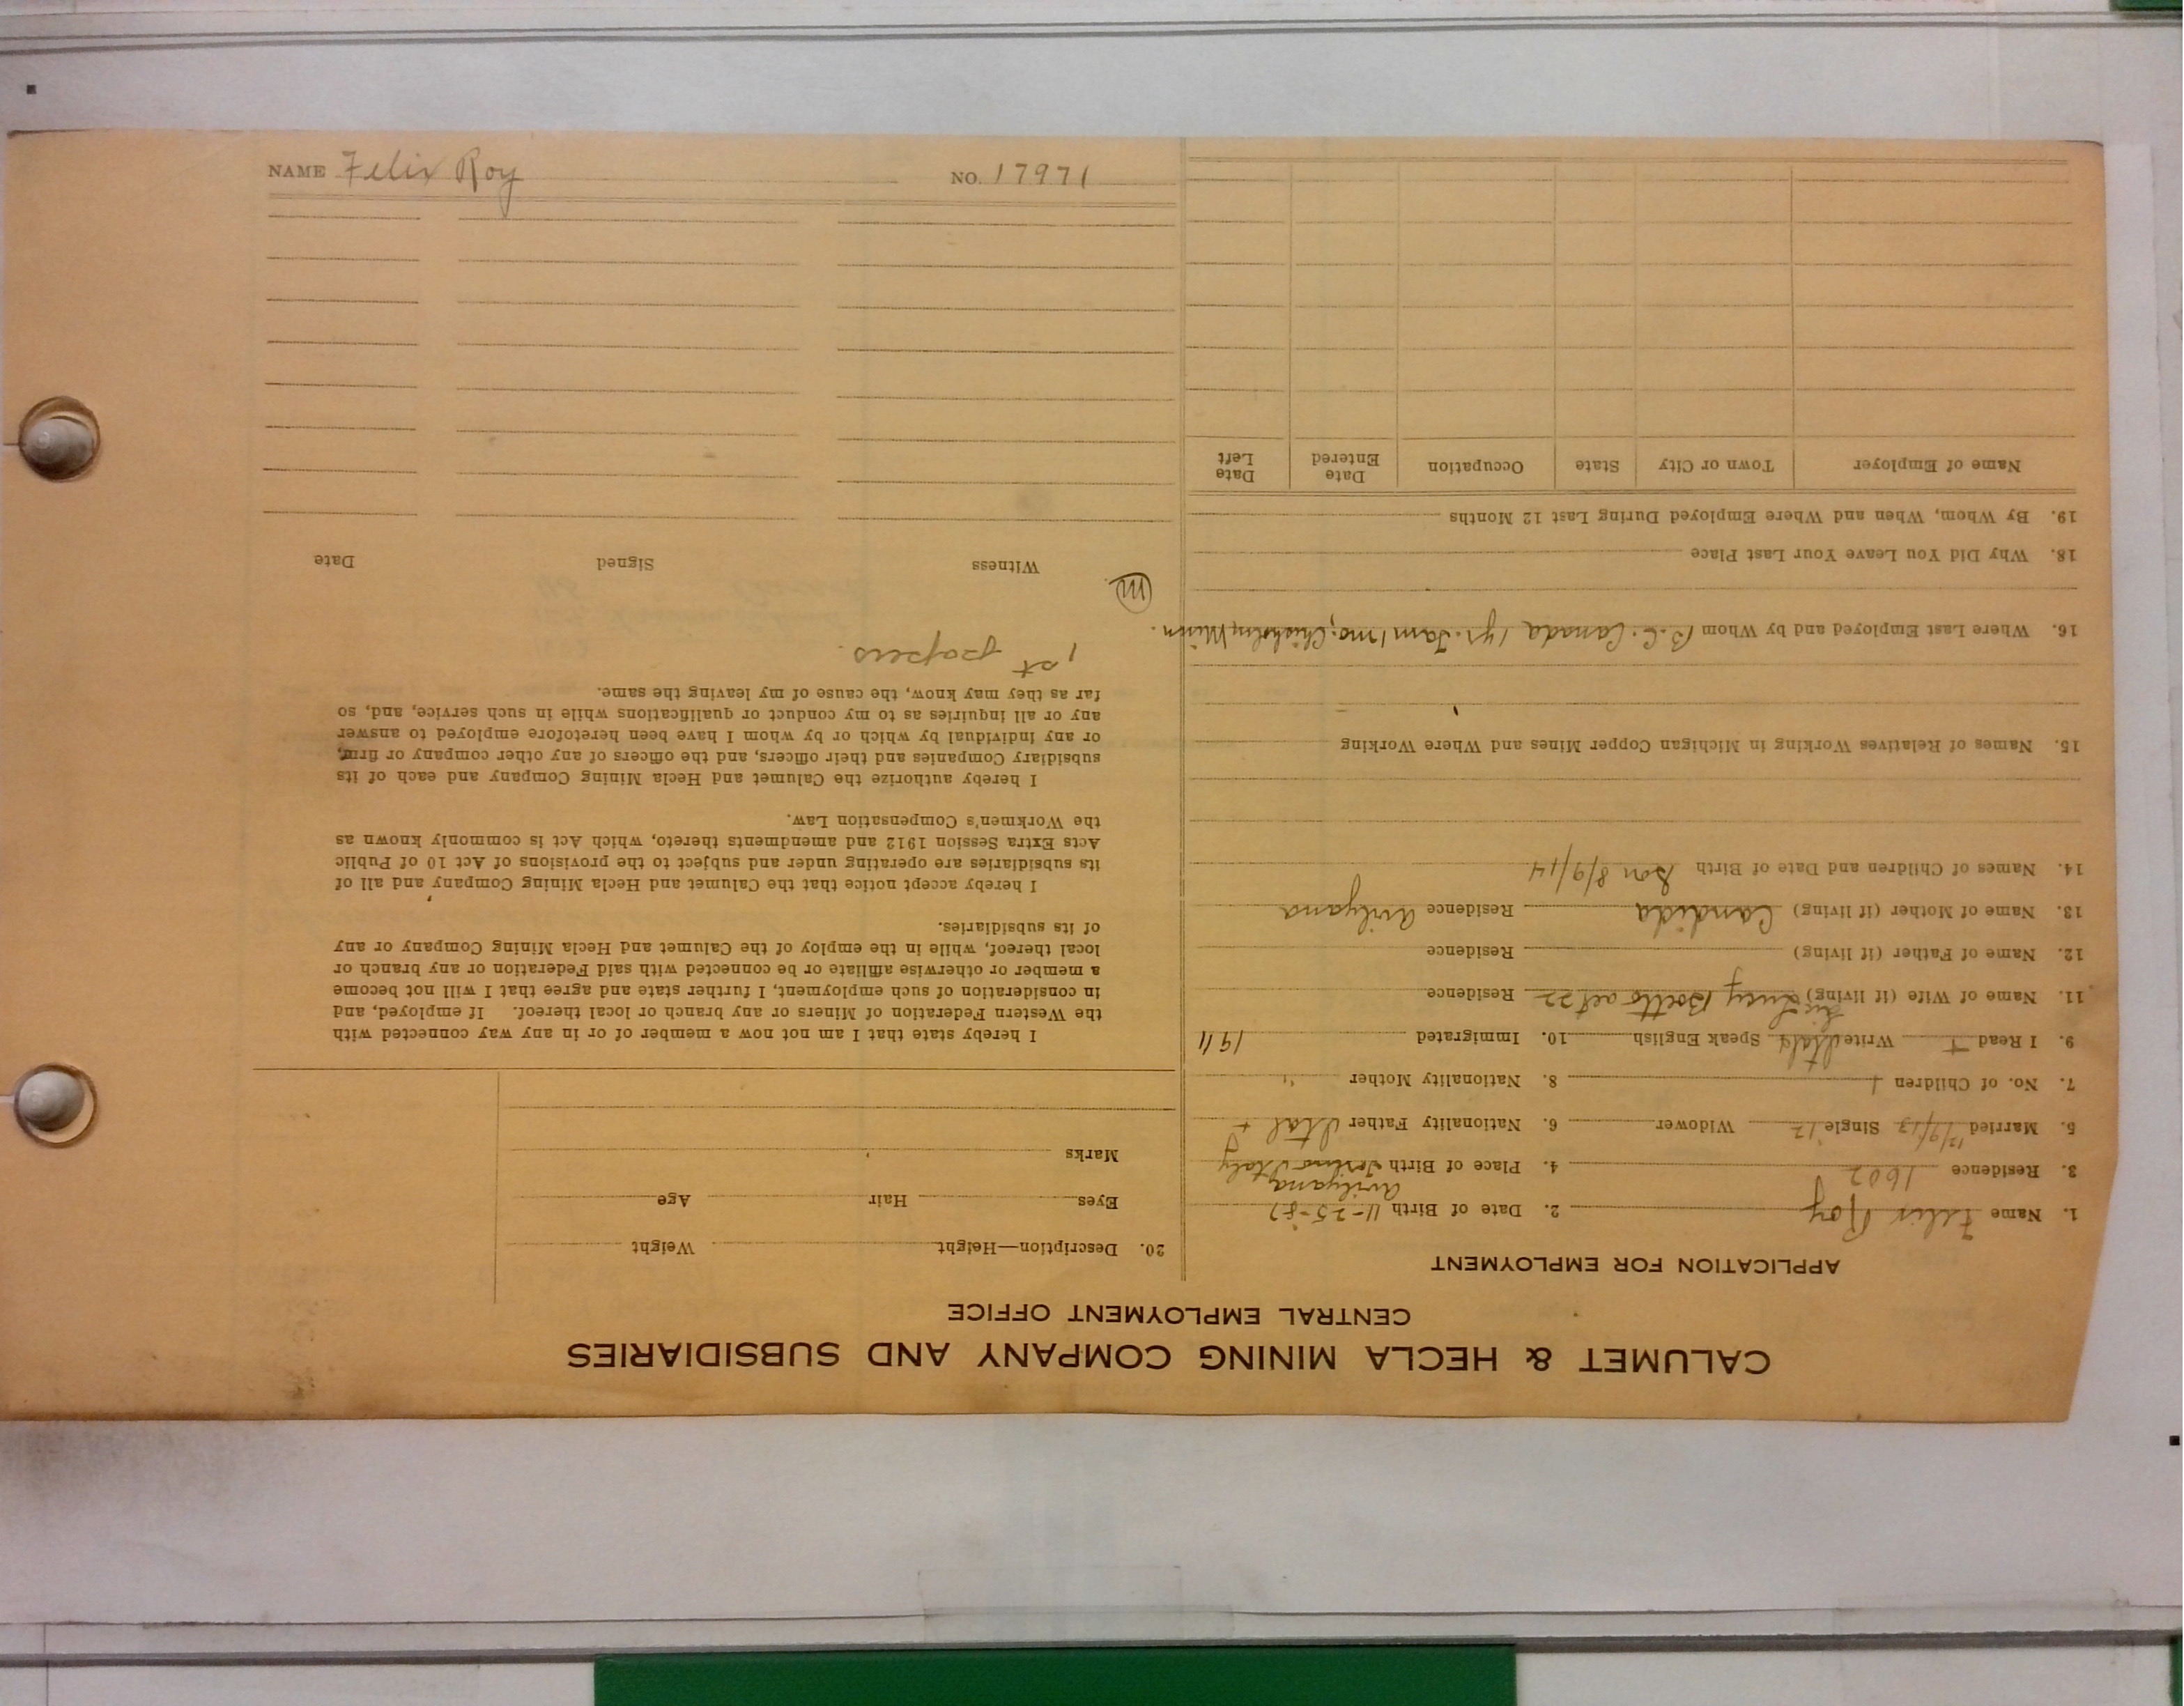 NAME Felix Roy NO. 17971
CALUMET & HECLA MINING COMPANY AND SUBSIDIARIES
CENTRAL EMPLOYMENT OFFICE
APPLICATION FOR EMPLOYMENT
1. Name Felix Roy 2. Date of Birth 11-25-87
Avilyana
3. Residence 1602 4. Place of Birth Torino Italy
5. Married 12/9/13 Single 12 Widower 6. Nationality Father Ital
7. No. of Children 1 8. Nationality Mother "
9. I Read + Write Italy Speak English 10. Immigrated 1911
11. Name of Wife (if living) Lucy Botto aet 22 Residence
12. Name of Father (if living) Residence
13. Name of Mother (if living) Candida Residence Avilyana
14. Names of Children and Date of Birth Son 8/9/14
15. Names of Relatives Working in Michigan Copper Mines and Where Working
16. Where Last Employed and by Whom B.C. Canada 1 yr. Tam 1 mo; Chisholm, Minn.
18. Why Did You Leave Your Last Place
19. By Whom, When and Where Employed During Last 12 Months
Name of Employer Town or City State Occupation Date Entered Date Left
20. Description—Height Weight
Eyes Hair Age
Marks
I hereby state that I am not now a member of or in any way connected with
the Western Federation of Miners or any branch or local thereof. If employed, and
in consideration of such employment, I further state and agree that I will not become
a member or otherwise affiliate or be connected with said Federation or any branch or
local thereof, while in the employ of the Calumet and Hecla Mining Company or any
of its subsidiaries.
I hereby accept notice that the Calumet and Hecla Mining Company and all of
its subsidiaries are operating under and subject to the provisions of Act 10 of Public
Acts Extra Session 1912 and amendments thereto, which Act is commonly known as
the Workmen's Compensation Law.
I hereby authorize the Calumet and Hecla Mining Company and each of its
subsidiary Companies and their officers, and the officers of any other company or firm,
or any individual by which or by whom I have been heretofore employed to answer
any or all inquiries as to my conduct or qualifications while in such service, and, so
far as they may know, the cause of my leaving the same.
1st papers.
M
Witness Signed Date